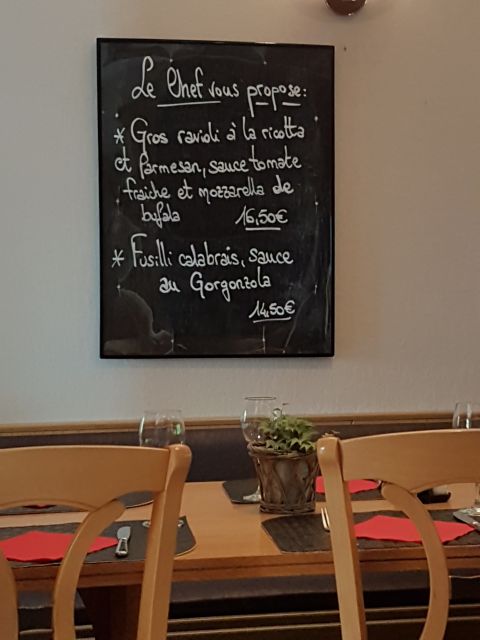 Le Chef vous propose:
* Gros ravioli à la ricotta
et Parmesan, sauce tomate
fraîche et mozzarella de
bufala 16,50€
* Fusilli calabrais, sauce
au Gorgonzola
14,50€